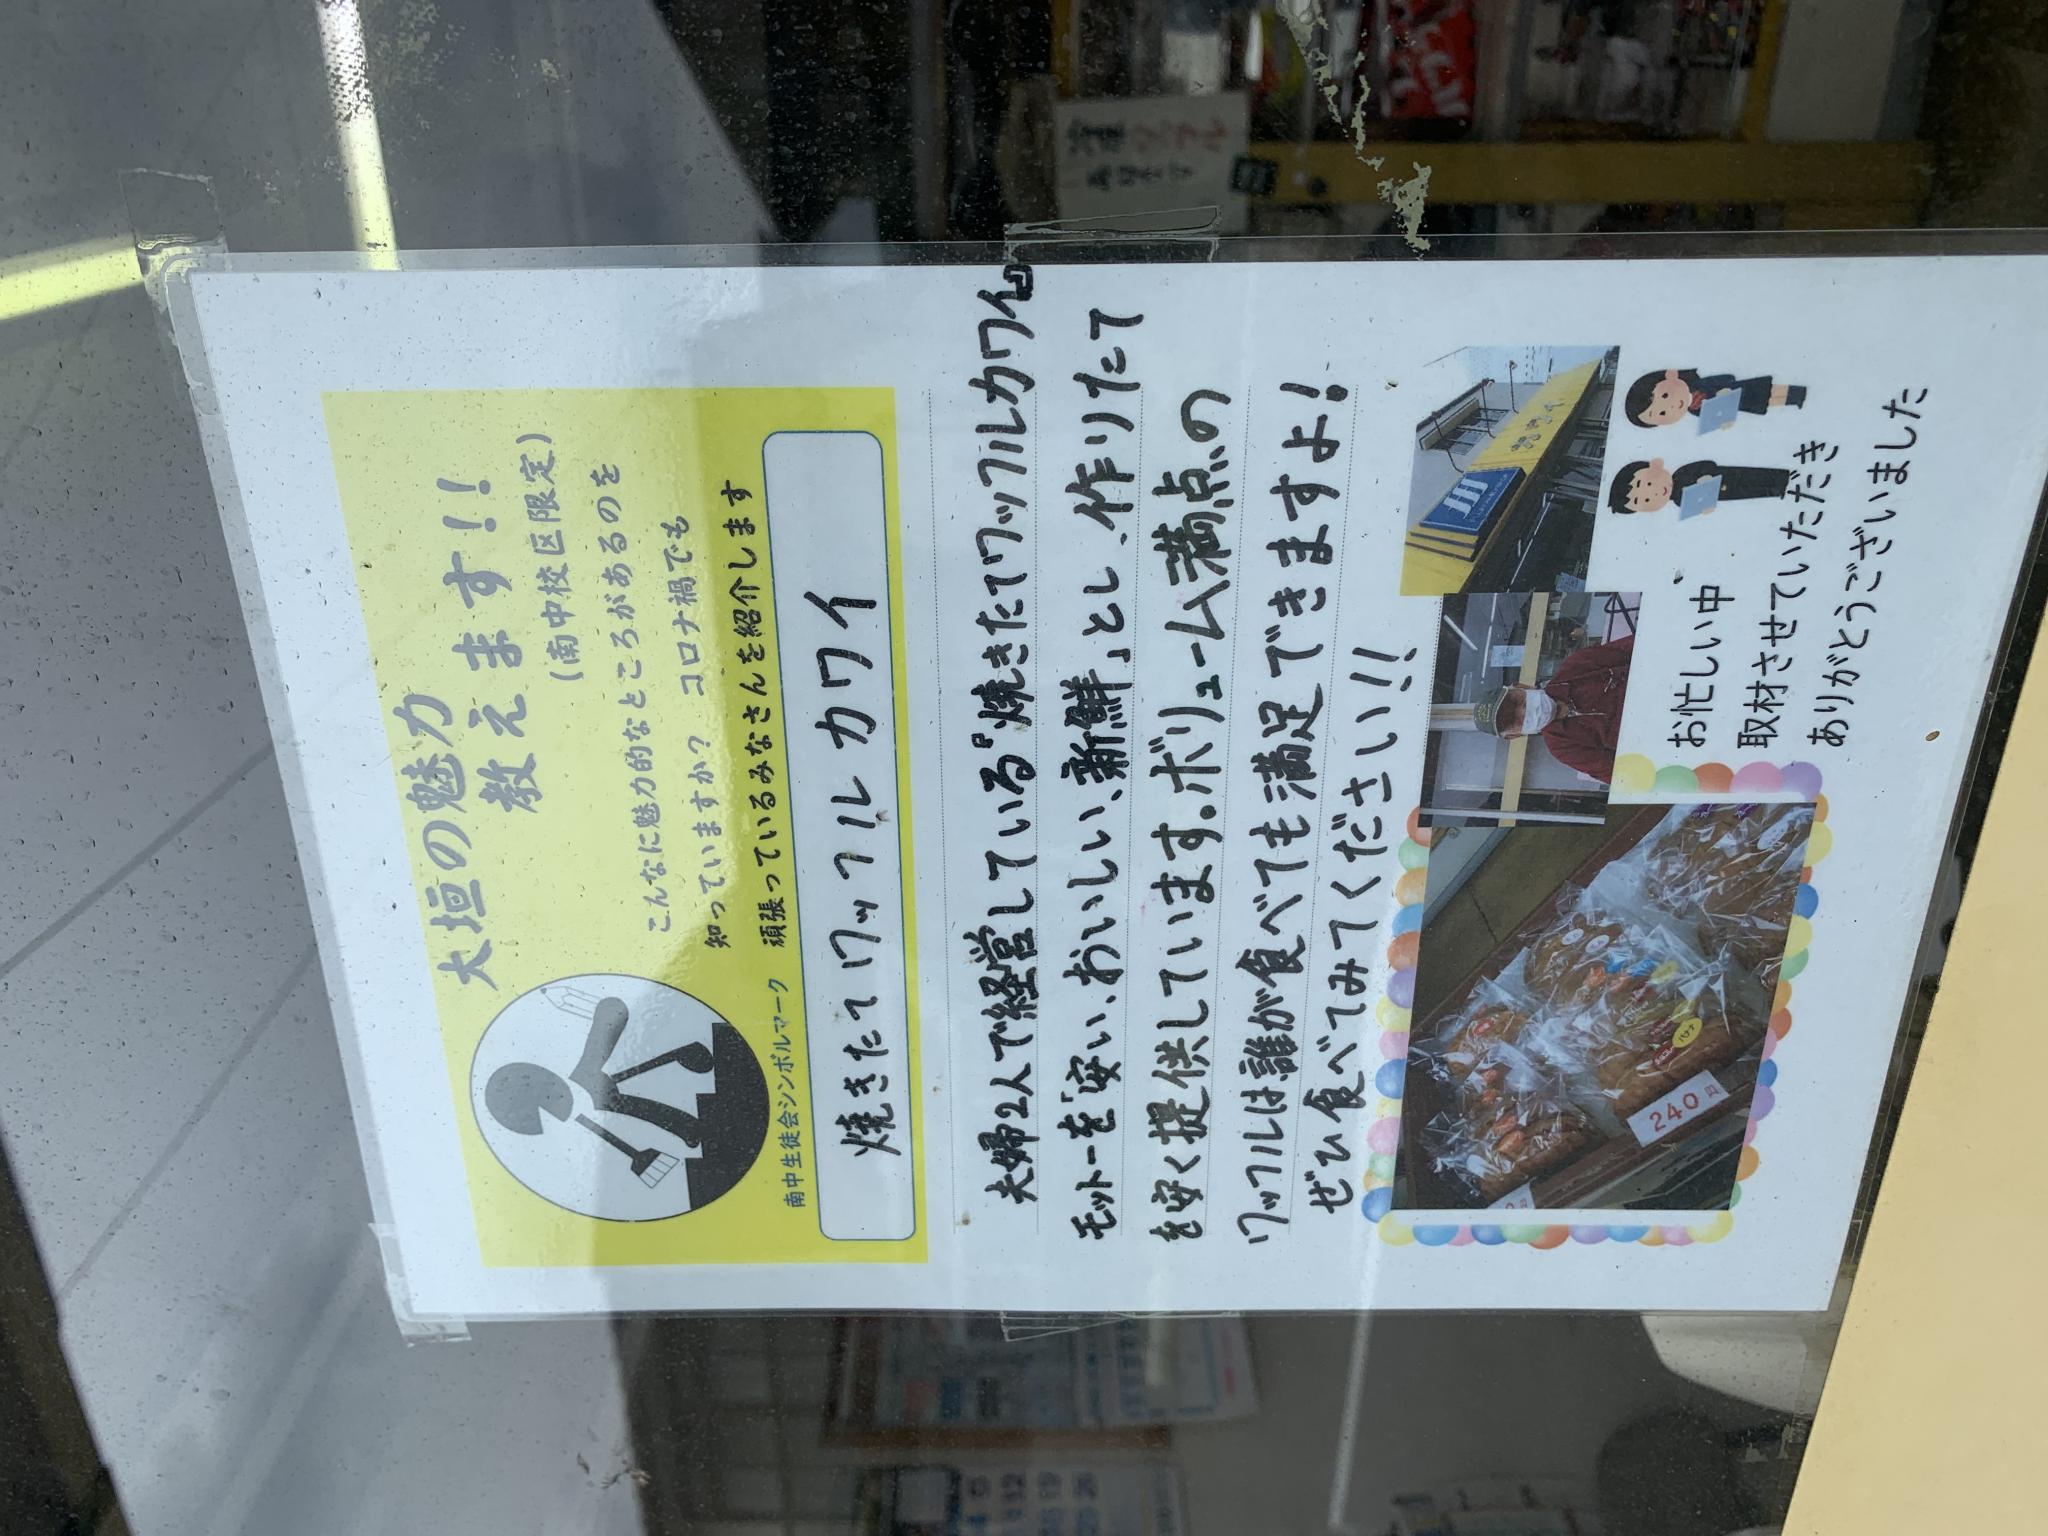 大垣の魅力
教えます!!
(南中校区限定)
こんなに魅力的なところがあるのを
知っていますか? コロナ禍でも
頑張っているみなさんを紹介します
南中生徒会シンボルマーク
焼きたてワッフルカワイ
夫婦2人で経営している『焼きたてワッフルカワイ』
モットーを「安い、おいしい、新鮮」とし、作りたて
を安く提供しています。ボリューム満点の
ワッフルは誰が食べても満足できますよ!
ぜひ食べてみてください!!
カワイ
240円
バナナ
お忙しい中
取材させていただき
ありがとうございました